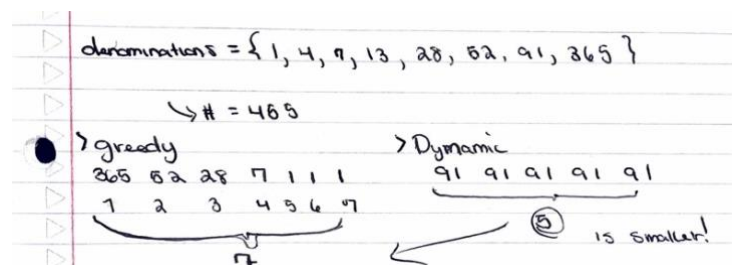 denominations = { 1, 4, 7, 13, 28, 52, 91, 365 }
↳ # = 455
> greedy
365 52 28 7 1 1 1
1 2 3 4 5 6 7
7
> Dymamic
91 91 91 91 91
5 is smaller!